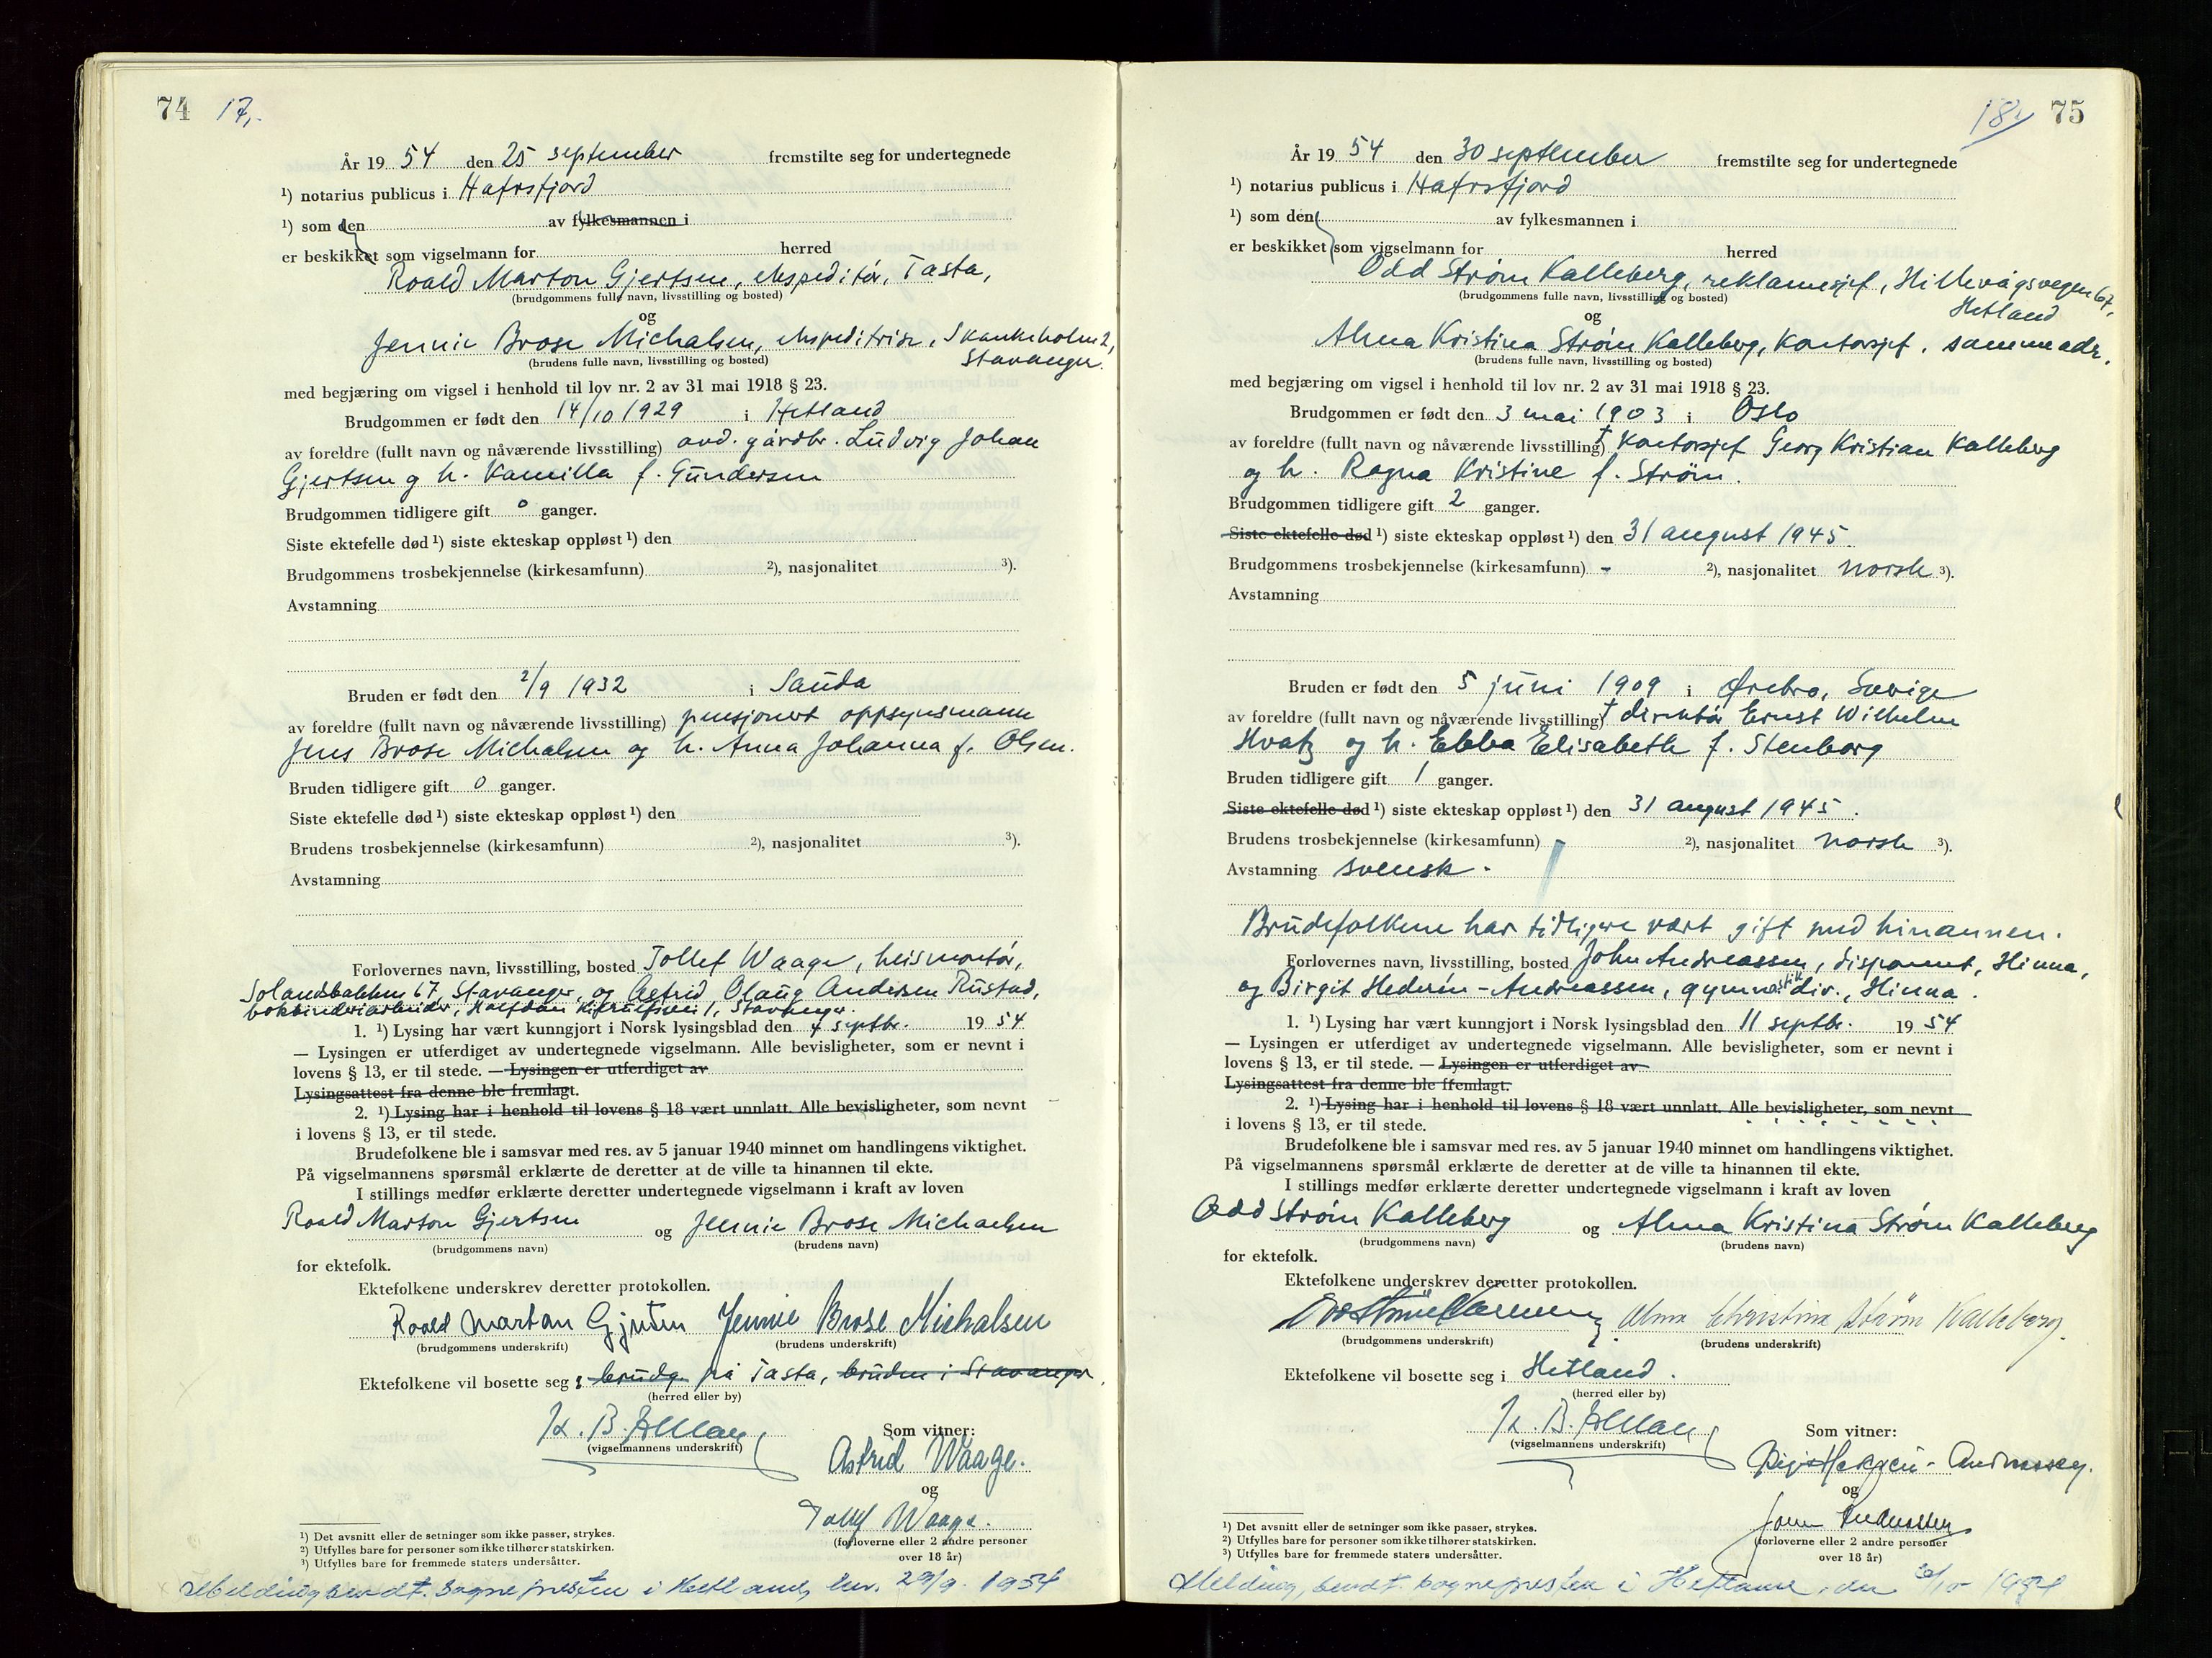 74 17,-
År 19 54 den 25 september fremstilte seg for undertegnede
¹) notarius publicus i Hafrsfjord
¹) som den av fylkesmannen i
er beskikket som vigselmann for herred
Roald Marton Gjertsen, ekspeditør, Tasta,
(brudgommens fulle navn, livsstilling og bosted)
og
Jennie Brose Michalsen, ekspeditrise, Skankeholm 2,
Stavanger.
(brudens fulle navn, livsstilling og bosted)
med begjæring om vigsel i henhold til lov nr. 2 av 31 mai 1918 § 23.
Brudgommen er født den 14/10 1929 i Hetland
av foreldre (fullt navn og nåværende livsstilling) avd. gårdbr. Ludvig Johan
Gjertsen og h. Kamilla f. Gundersen
Brudgommen tidligere gift 0 ganger.
Siste ektefelle død ¹) siste ekteskap oppløst ¹) den
Brudgommens trosbekjennelse (kirkesamfunn) ²), nasjonalitet ³).
Avstamning
Bruden er født den 2/9 1932 i Sauda
av foreldre (fullt navn og nåværende livsstilling) pensjonert oppsynsmann
Jens Brose Michalsen og h. Anna Johanna f. Olsen.
Bruden tidligere gift 0 ganger.
Siste ektefelle død ¹) siste ekteskap oppløst ¹) den
Brudens trosbekjennelse (kirkesamfunn) ²), nasjonalitet ³).
Avstamning
Forlovernes navn, livsstilling, bosted Tollef Waage, heismontør,
Solandsbakken 67, Stavanger, og Astrid Olaug Andersen Rustad,
bokbinderiarbeider, Halfdan 1, Stavanger.
1. ¹) Lysing har vært kunngjort i Norsk lysingsblad den 4 septbr. 19 54
— Lysingen er utferdiget av undertegnede vigselmann. Alle bevisligheter, som er nevnt i
lovens § 13, er til stede. — Lysingen er utferdiget av
Lysingsattest fra denne ble fremlagt.
2. ¹) Lysing har i henhold til lovens § 18 vært unnlatt. Alle bevisligheter, som nevnt
i lovens § 13, er til stede.
Brudefolkene ble i samsvar med res. av 5 januar 1940 minnet om handlingens viktighet.
På vigselmannens spørsmål erklærte de deretter at de ville ta hinannen til ekte.
I stillings medfør erklærte deretter undertegnede vigselmann i kraft av loven
Roald Marton Gjertsen og Jennie Brose Michaelsen
(brudgommens navn) (brudens navn)
for ektefolk.
Ektefolkene underskrev deretter protokollen.
Roald Marton Gjertsen Jennie Brose Michalsen
(brudgommens underskrift) (brudens underskrift)
Ektefolkene vil bosette seg i brudg. på Tasta, bruden i Stavanger.
(herred eller by)
(vigselmannens underskrift)
Som vitner:
Astrid Waage.
og
Tollef Waage.
(forloverne eller 2 andre personer
over 18 år)
¹) Det avsnitt eller de setninger som ikke passer, strykes.
²) Utfylles bare for personer som ikke tilhører statskirken.
³) Utfylles bare for fremmede staters undersåtter.
Melding sendt. sognepresten i Hetland, den 29/9. 1954
18, 75
År 19 54 den 30 september fremstilte seg for undertegnede
¹) notarius publicus i Hafrsfjord
¹) som den av fylkesmannen i
er beskikket som vigselmann for herred
Odd Strøm Kalleberg, reklamesjef, Hillevågsvegen 67,
Hetland
(brudgommens fulle navn, livsstilling og bosted)
og
Alma Kristina Strøm Kalleberg, kontorsjef, samme adr.
(brudens fulle navn, livsstilling og bosted)
med begjæring om vigsel i henhold til lov nr. 2 av 31 mai 1918 § 23.
Brudgommen er født den 3 mai 1903 i Oslo
av foreldre (fullt navn og nåværende livsstilling) † kontorsjef Georg Kristian Kalleberg
og h. Ragna Kristine f. Strøm.
Brudgommen tidligere gift 2 ganger.
Siste ektefelle død ¹) siste ekteskap oppløst ¹) den 31 august 1945.
Brudgommens trosbekjennelse (kirkesamfunn) - ²), nasjonalitet norsk ³).
Avstamning
Bruden er født den 5 juni 1909 i Ørebro, Sverige
av foreldre (fullt navn og nåværende livsstilling) † direktør Ernst Wilhelm
Hvatz og h. Ebba Elisabeth f. Stenborg
Bruden tidligere gift 1 ganger.
Siste ektefelle død ¹) siste ekteskap oppløst ¹) den 31 august 1945.
Brudens trosbekjennelse (kirkesamfunn) - ²), nasjonalitet norsk ³).
Avstamning svensk.
Brudefolkene har tidligere vært gift med hinannen.
Forlovernes navn, livsstilling, bosted John Andreassen, disponent, Hinna,
og Birgit Hedern-Andreassen, gymnastikkdir., Hinna.
1. ¹) Lysing har vært kunngjort i Norsk lysingsblad den 11 septbr. 19 54
— Lysingen er utferdiget av undertegnede vigselmann. Alle bevisligheter, som er nevnt i
lovens § 13, er til stede. — Lysingen er utferdiget av
Lysingsattest fra denne ble fremlagt.
2. ¹) Lysing har i henhold til lovens § 18 vært unnlatt. Alle bevisligheter, som nevnt
i lovens § 13, er til stede.
Brudefolkene ble i samsvar med res. av 5 januar 1940 minnet om handlingens viktighet.
På vigselmannens spørsmål erklærte de deretter at de ville ta hinannen til ekte.
I stillings medfør erklærte deretter undertegnede vigselmann i kraft av loven
Odd Strøm Kalleberg og Alma Kristina Strøm Kalleberg
(brudgommens navn) (brudens navn)
for ektefolk.
Ektefolkene underskrev deretter protokollen.
Alma Christina Strøm Kalleberg.
(brudgommens underskrift) (brudens underskrift)
Ektefolkene vil bosette seg i Hetland.
(herred eller by)
(vigselmannens underskrift)
Som vitner:
og
(forloverne eller 2 andre personer
over 18 år)
¹) Det avsnitt eller de setninger som ikke passer, strykes.
²) Utfylles bare for personer som ikke tilhører statskirken.
³) Utfylles bare for fremmede staters undersåtter.
Melding, sendt. sognepresten i Hetland, den